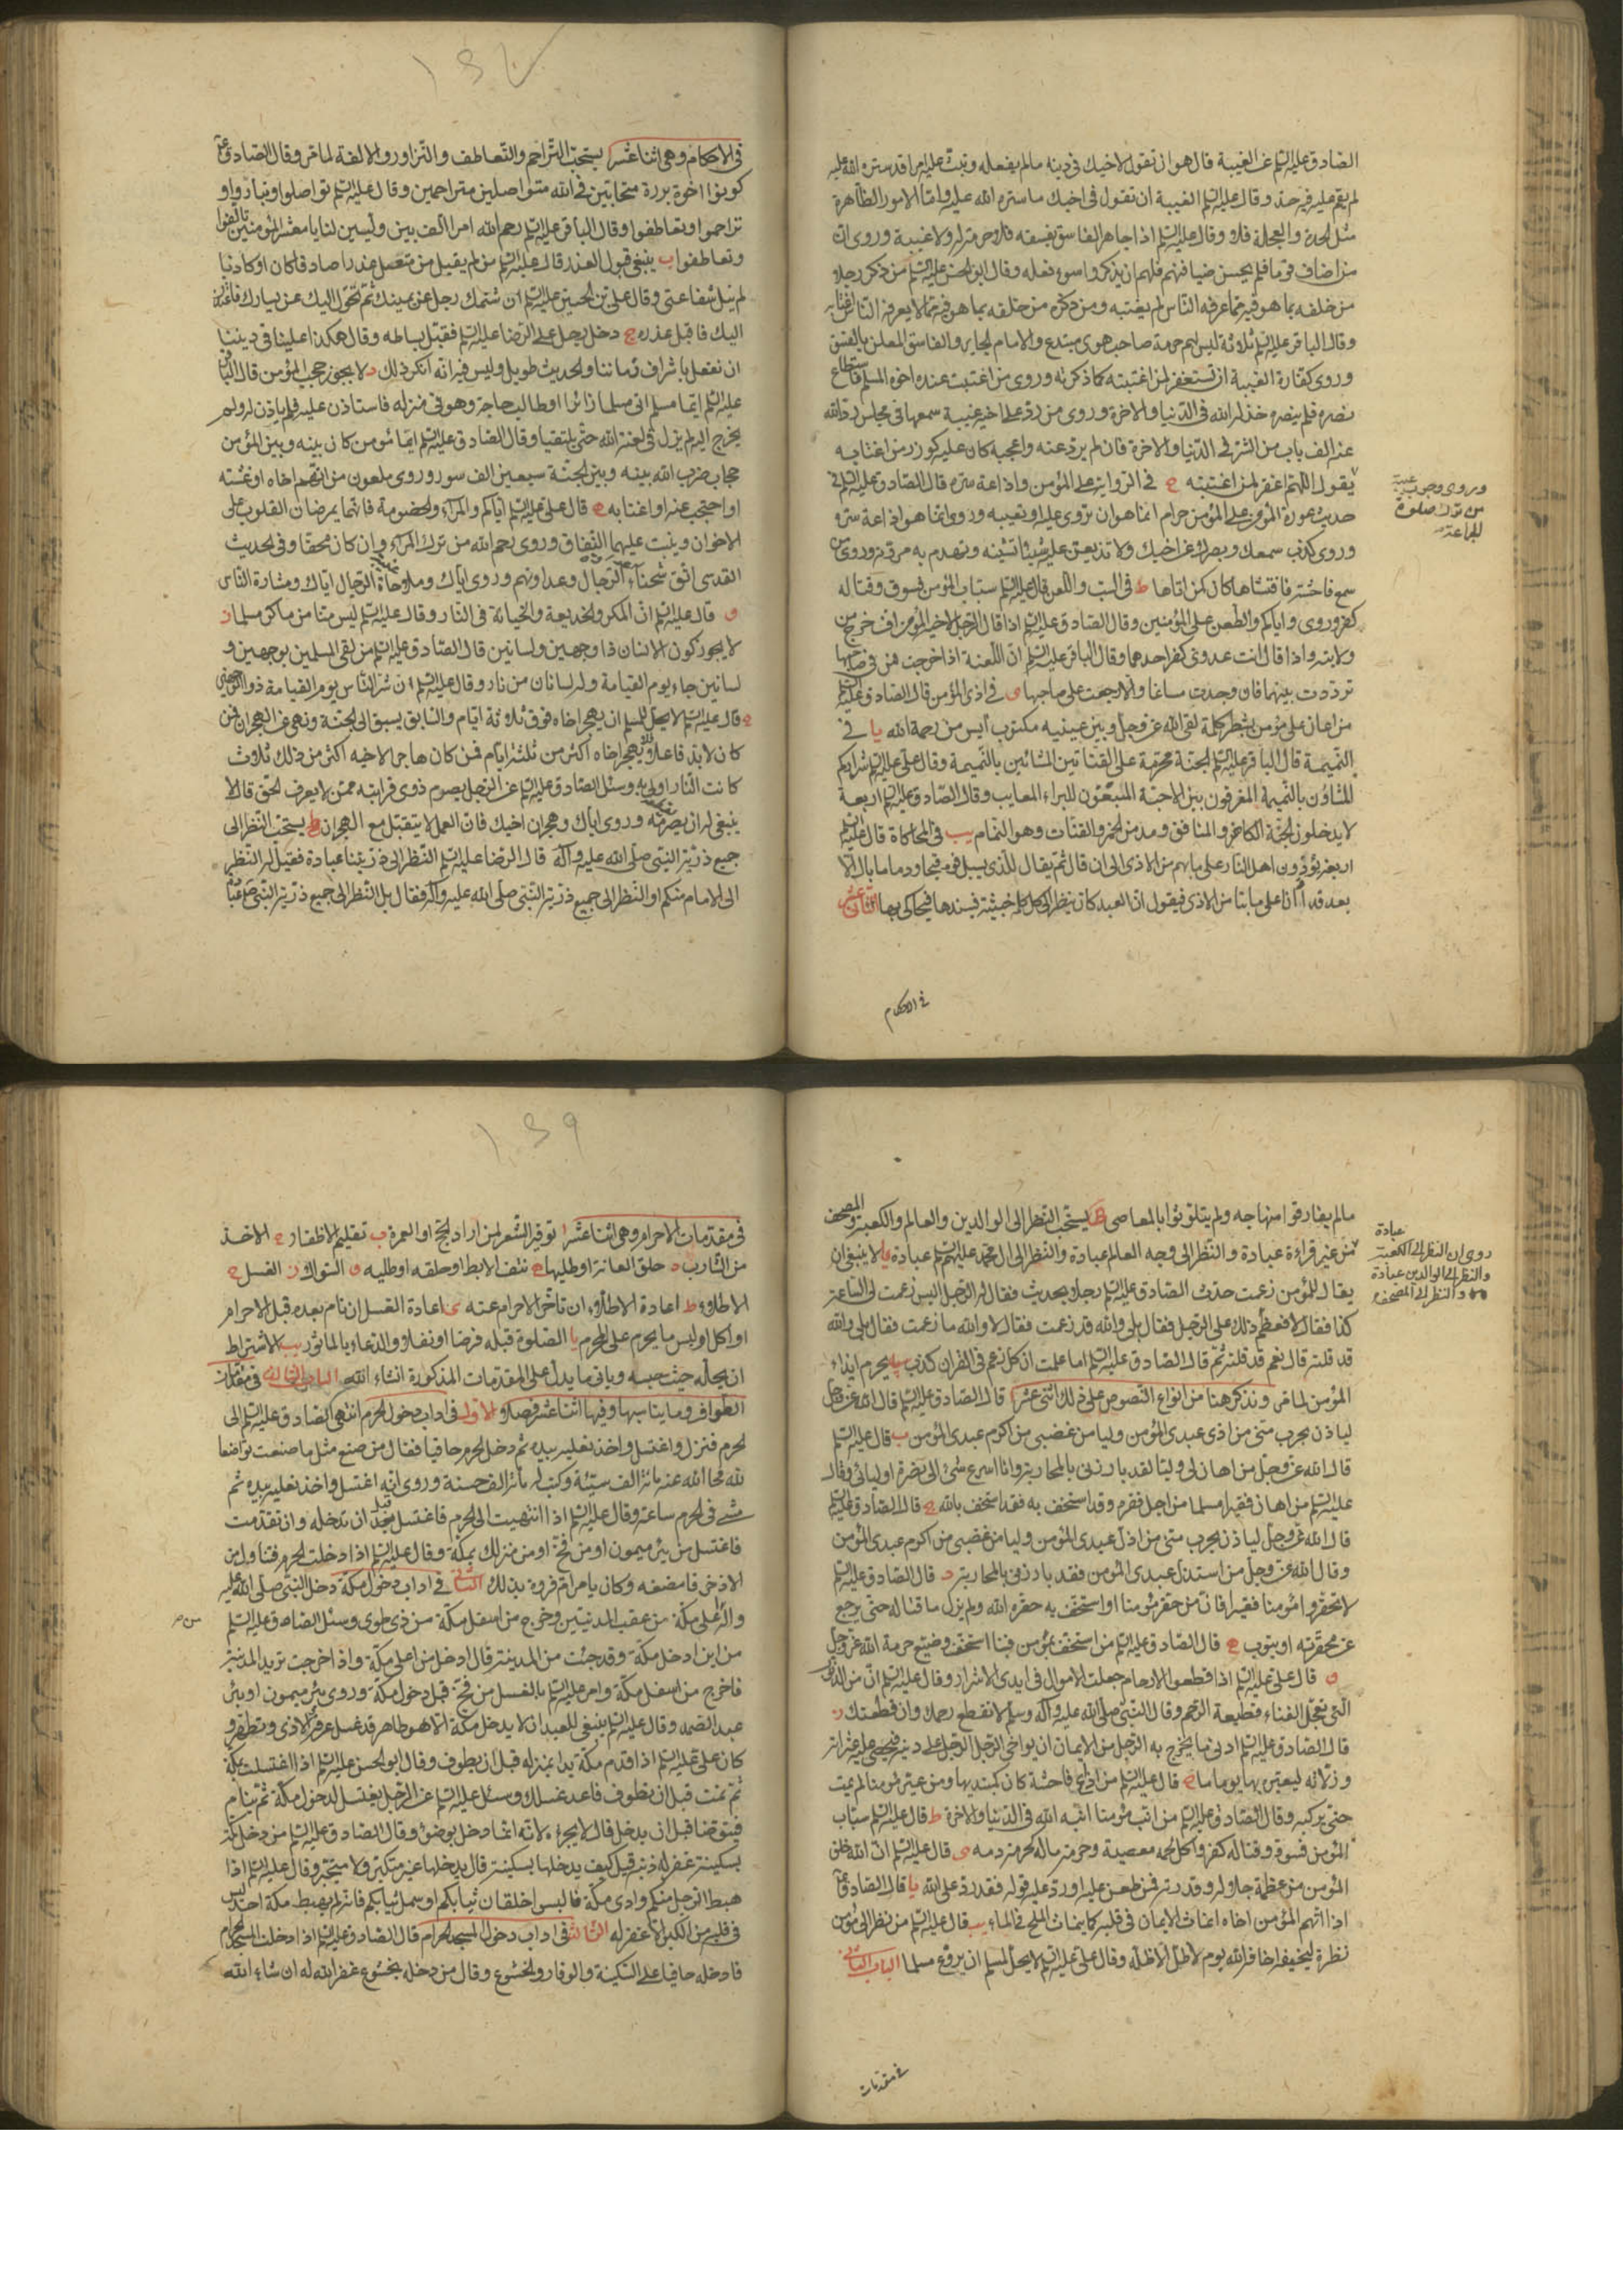 الصادق عليه السلم عن الغيبة قال هو ان تقول لاخيك في دينه ما لم يفعله وتبث عليه امرا قد ستره الله عليه
لم يقم عليه فيه حد وقال عليه السلم الغيبة ان تقول في اخيك ما ستره الله عليه واما الامور الظاهرة
مثل الحدة والعجلة فلا وقال عليه السلم اذا جاهر الفاسق بفسقه فلا حرمة له ولا غيبة وروى ان
من اضاف قوما فلم يحسن ضيافتهم فلهم ان يذكروا سوء فعله وقال ابو الحسن عليه السلم من ذكر رجلا
من خلفه بما هو فيه مما عرفه الناس لم يغتبه ومن ذكره من خلفه بما هو فيه مما لا يعرفه الناس اغتابه
وقال الباقر عليه السلم ثلاثة ليس لهم حرمة صاحب هوى مبتدع والامام الجاير والفاسق المعلن بالفسق
وروى كفارة الغيبة ان تستغفر لمن اغتبته كما ذكرته وروى من اغتيب عنده اخوه المسلم فاستطاع
نصره فلم ينصره خذله الله في الدنيا والاخرة وروى من رد على اخيه غيبة سمعها في مجلس رد الله
عنه الف باب من الشر في الدنيا والاخرة فان لم يرد عنه واعجبه كان عليه كوزر من اغتابه
يقول اللهم اغفر لمن اغتبته ح في الرواية على المؤمن واذاعة سره قال الصادق عليه السلم في
حديث عورة المؤمن على المؤمن حرام انما هو ان تروى عليه او تعيبه وروى انما هو اذاعة سره
وروى كذب سمعك وبصرك عن اخيك ولا تذيعن عليه شيئا تشينه وتهدم به مروته وروى من
سمع فاحشة فافشاها كان كمن اتاها ط في السب واللعن قال عليه السلم سباب المؤمن فسوق وقتاله
كفر وروى واياكم والطعن على المؤمنين وقال الصادق عليه السلم اذا قال الرجل لاخيه المؤمن اف خرج من
ولايته واذا قال انت عدوى كفر احدهما وقال الباقر عليه السلم ان اللعنة اذا خرجت من في صاحبها
ترددت بينهما فان وجدت مساغا والا رجعت على صاحبها ى في اذى المؤمن قال الصادق عليه السلم
من اعان على مؤمن بشطر كلمة لقى الله عز وجل وبين عينيه مكتوب ايس من رحمة الله يا في
النميمة قال الباقر عليه السلم الجنة محرمة على القتاتين المشائين بالنميمة وقال على عليه السلم شراركم
المشاؤن بالنميمة المفرقون بين الاحبة المبتغون للبراء المعايب وقال الصادق عليه السلم اربعة
لا يدخلون الجنة الكاهن والمنافق ومدمن الخمر والقتات وهو النمام يب في المحاكاة قال عليه السلم
اربعة يؤذون اهل النار على ما بهم من الاذى الى ان قال ثم يقال للذى يسيل فوه قيحا ودما ما بال الا
بعد قد اذانا على ما بنا من الاذى فيقول ان العبد كان ينظر الى كل كلمة خبيثة فيسندها فيحاكى بها الثانى عشر
وروى وجوب غيبة
من ترك صلوة
الجماعة
في الاحكام
في الاحكام وهى اثنا عشر ا يستحب التراحم والتعاطف والتزاور والالفة لما مر وقال الصادق ع
كونوا اخوة بررة متحابين في الله متواصلين متراحمين وقال عليه السلم تواصلوا وتباروا و
تراحموا وتعاطفوا وقال الباقر عليه السلم رحم الله امرا الف بين وليين لنا يا معشر المؤمنين تالفوا
وتعاطفوا ب ينبغى قبول العذر قال عليه السلم من لم يقبل من متنصل عذرا صادقا كان او كاذبا
لم ينل شفاعتى وقال على بن الحسين عليه السلم ان شتمك رجل عن يمينك ثم تحول اليك عن يسارك فاعتذر
اليك فاقبل عذره ج دخل رجل على الرضا عليه السلم فقبل بساطه وقال هكذا علينا في ديننا
ان نفعل باشراف زماننا والحديث طويل وليس فيه انه انكر ذلك د لا يجوز حجب المؤمن قال الباقر
عليه السلم ايما مسلم اتى مسلما زائرا او طالب حاجة وهو في منزله فاستاذن عليه فلم ياذن له ولم
يخرج اليه لم يزل في لعنة الله حتى يلتقيا وقال الصادق عليه السلم ايما مؤمن كان بينه وبين المؤمن
حجاب ضرب الله بينه وبين الجنة سبعين الف سور وروى ملعون من اتهم اخاه او غشه
او احتجب عنه او اغتابه ه قال على عليه السلم اياكم والمراء والخصومة فانهما يمرضان القلوب على
الاخوان وينبت عليهما النفاق وروى رحم الله من ترك المراء وان كان محقا وفي الحديث
القدسى اتق شحناء الرجال وعداوتهم وروى اياك وملاحاة الرجال اياك ومشارة الناس
و قال عليه السلم ان المكر والخديعة والخيانة في النار وقال عليه السلم ليس منا من ماكر مسلما ز
لا يجوز كون الانسان ذا وجهين ولسانين قال الصادق عليه السلم من لقى المسلمين بوجهين و
لسانين جاء يوم القيامة وله لسانان من نار وقال عليه السلم ان شر الناس يوم القيامة ذو الوجهين
ح قال عليه السلم لا يحل للمسلم ان يهجر اخاه فوق ثلاثة ايام والسابق يسبق الى الجنة ونهى عن الهجران فمن
كان لابد فاعلا فلا يهجر اخاه اكثر من ثلثة ايام فمن كان هاجرا لاخيه اكثر من ذلك ثلاث
كانت النار اولى به وسئل الصادق عليه السلم عن الرجل يصرم ذوى قرابته ممن لا يعرف الحق قال لا
ينبغى له ان يصرمه وروى اياك وهجران اخيك فان العمل لا يتقبل مع الهجران ط يستحب النظر الى
جميع ذرية النبى صلى الله عليه وآله قال الرضا عليه السلم النظر الى ذريتنا عبادة فقيل له النظر
الى الامام منكم او النظر الى جميع ذرية النبى صلى الله عليه وآله فقال بل النظر الى جميع ذرية النبى عبادة
ما لم يفارقوا منهاجه ولم يتلوثوا بالمعاصى ى يستحب النظر الى الوالدين والعالم والكعبة والمصحف
من غير قراءة عبادة والنظر الى وجه العالم عبادة والنظر الى آل محمد عليهم السلم عبادة يا لا ينبغى ان
يقال للمؤمن زعمت حدث الصادق عليه السلم رجلا بحديث فقال له الرجل اليس زعمت لى الساعة
كذا فقال لا فعظم ذلك على الرجل فقال بلى والله قد زعمت فقال لا والله ما زعمت فقال بلى والله
قد قلته قال نعم قد قلته ثم قال الصادق عليه السلم اما علمت ان كل زعم في القران كذب يب يحرم ايذاء
المؤمن لما مر ونذكر هنا من انواع النصوص على ذلك اثنى عشر ا قال الصادق عليه السلم قال الله عز وجل
لياذن بحرب منى من اذى عبدى المؤمن وليامن غضبى من اكرم عبدى المؤمن ب قال عليه السلم
قال الله عز وجل من اهان لى وليا لقد بارزنى بالمحاربة وانا اسرع شئ الى نصرة اوليائى وقال
عليه السلم من اهان فقيرا مسلما من اجل فقره وقد استخف به فقد استخف بالله ج قال الصادق عليه السلم
قال الله عز وجل لياذن بحرب منى من اذل عبدى المؤمن وليامن غضبى من اكرم عبدى المؤمن
وقال الله عز وجل من استذل عبدى المؤمن فقد بارزنى بالمحاربة د قال الصادق عليه السلم
لا تحقروا مؤمنا فقيرا فان من حقر مؤمنا او استخف به حقره الله ولم يزل ماقتا له حتى يرجع
عن محقرته او يتوب ه قال الصادق عليه السلم من استخف بمؤمن فبنا استخف وضيع حرمة الله عز وجل
و قال على عليه السلم اذا قطعوا الارحام جعلت الاموال في ايدى الاشرار وقال عليه السلم ان من الذنوب
التى تعجل الفناء قطيعة الرحم وقال النبى صلى الله عليه وآله وسلم لا تقطع رحمك وان قطعتك ز
قال الصادق عليه السلم ادنى ما يخرج به الرجل من الايمان ان يواخى الرجل الرجل على دينه فيحصى عليه عثراته
وزلاته ليعيره بها يوما ما ح قال عليه السلم من اذاع فاحشة كان كمبتديها ومن عير مؤمنا لم يمت
حتى يركبه وقال الصادق عليه السلم من انب مؤمنا انبه الله في الدنيا والاخرة ط قال عليه السلم سباب
المؤمن فسوق وقتاله كفر واكل لحمه معصية وحرمة ماله كحرمة دمه ى قال عليه السلم ان الله خلق
المؤمن من عظمة جلاله وقدرته فمن طعن عليه او رد عليه قوله فقد رد على الله يا قال الصادق ع
اذا اتهم المؤمن اخاه انماث الايمان في قلبه كما ينماث الملح في الماء يب قال عليه السلم من نظر الى مؤمن
نظرة ليخيفه اخافه الله يوم لا ظل الا ظله وقال على عليه السلم لا يحل لمسلم ان يروع مسلما الباب الثانى
عبادة
روى ان النظر الى الكعبة
والنظر الى الوالدين عبادة
والنظر الى المصحف
في مقدمات
في مقدمات الاحرام وهى اثنا عشر ا توفير الشعر لمن اراد الحج او العمرة ب تقليم الاظفار ج الاخذ
من الشارب د حلق العانة او طليها ه نتف الابط او حلقه او طليه و السواك ز الغسل ح
الاطلاء ط اعادة الاطلاء ان تاخر الاحرام عنه ى اعادة الغسل ان نام بعده قبل الاحرام
او اكل او لبس ما يحرم على المحرم يا الصلوة قبله فرضا او نفلا والدعاء بالماثور يب الاشتراط
ان يحله حيث حبسه وياتى ما يدل على المقدمات المذكورة انشاء الله الباب الثالث في مقدمات
الطواف وما يناسبها وفيها اثنا عشر فصلا الاول في اداب دخول الحرم انتهى الصادق عليه السلم الى
الحرم فنزل واغتسل واخذ نعليه بيده ثم دخل الحرم حافيا فقال من صنع مثل ما صنعت تواضعا
لله محا الله عنه مائة الف سيئة وكتب له مائة الف حسنة وروى انه اغتسل واخذ نعليه بيده ثم
مشى في الحرم ساعة وقال عليه السلم اذا انتهيت الى الحرم فاغتسل قبل ان تدخله وان تقدمت
فاغتسل من بئر ميمون او من فخ او من منزلك بمكة وقال عليه السلم اذا دخلت الحرم فتناول من
الاذخر فامضغه وكان يامر ام فروة بذلك الثانى في اداب دخول مكة دخل النبى صلى الله عليه
وآله اعلى مكة من عقبة المدنيين وخرج من اسفل مكة من ذى طوى وسئل الصادق عليه السلم
من اين ادخل مكة وقد جئت من المدينة قال ادخل من اعلى مكة واذا خرجت تريد المدينة
فاخرج من اسفل مكة وامر عليه السلم بالغسل من فخ قبل دخول مكة وروى بئر ميمون او بئر
عبد الصمد وقال عليه السلم ينبغى للعبد ان لا يدخل مكة الا وهو طاهر قد غسل عرقه والاذى وتطهر و
كان على عليه السلم اذا قدم مكة بدا بمنزله قبل ان يطوف وقال ابو الحسن عليه السلم اذا اغتسلت بمكة
ثم نمت قبل ان تطوف فاعد غسلك وسئل عليه السلم عن الرجل يغتسل لدخول مكة ثم ينام
فيتوضا قبل ان يدخل قال لا يجزء لانه انما دخل بوضوء وقال الصادق عليه السلم من دخل مكة
بسكينة غفر له ذنبه قيل كيف يدخلها بسكينة قال يدخلها غير متكبر ولا متجبر وقال عليه السلم اذا
هبط الرجل منكم وادى مكة فالبس اخلقان ثيابكم او سمل ثيابكم فانه لم يهبط مكة احد ليس
في قلبه من الكبر الا غفر له الثالث في اداب دخول المسجد الحرام قال الصادق عليه السلم اذا دخلت المسجد الحرام
فادخله حافيا على السكينة والوقار والخشوع وقال من دخله بخشوع غفر الله له ان شاء الله